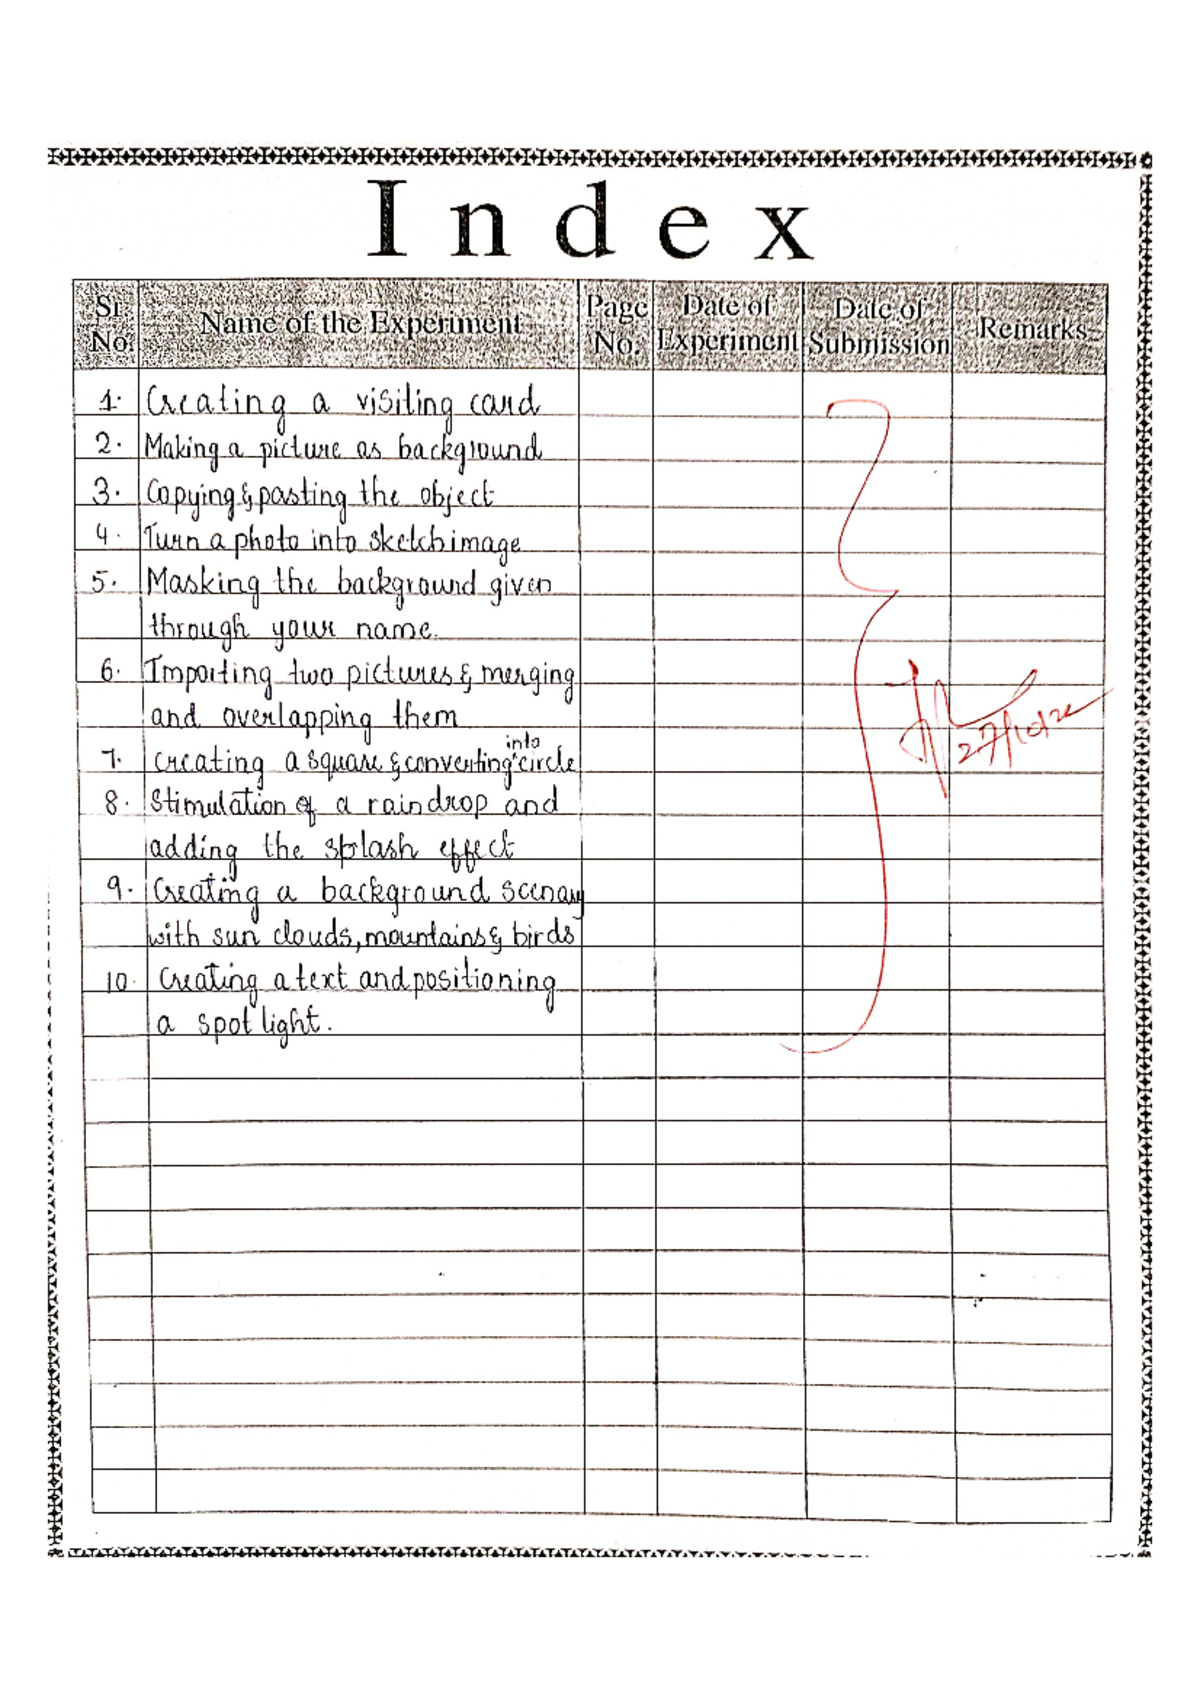 Index
Sr. No. Name of the Experiment Page No. Date of Experiment Date of Submission Remarks
1. Creating a visiting card
2. Making a picture as background
3. Copying & pasting the object
4. Turn a photo into sketch image
5. Masking the background given
through your name.
6. Importing two pictures & merging
and overlapping them
7. Creating a square & converting into circle
8. Stimulation of a raindrop and
adding the splash effect
9. Creating a background scenary
with sun clouds, mountains & birds
10. Creating a text and positioning
a spot light.